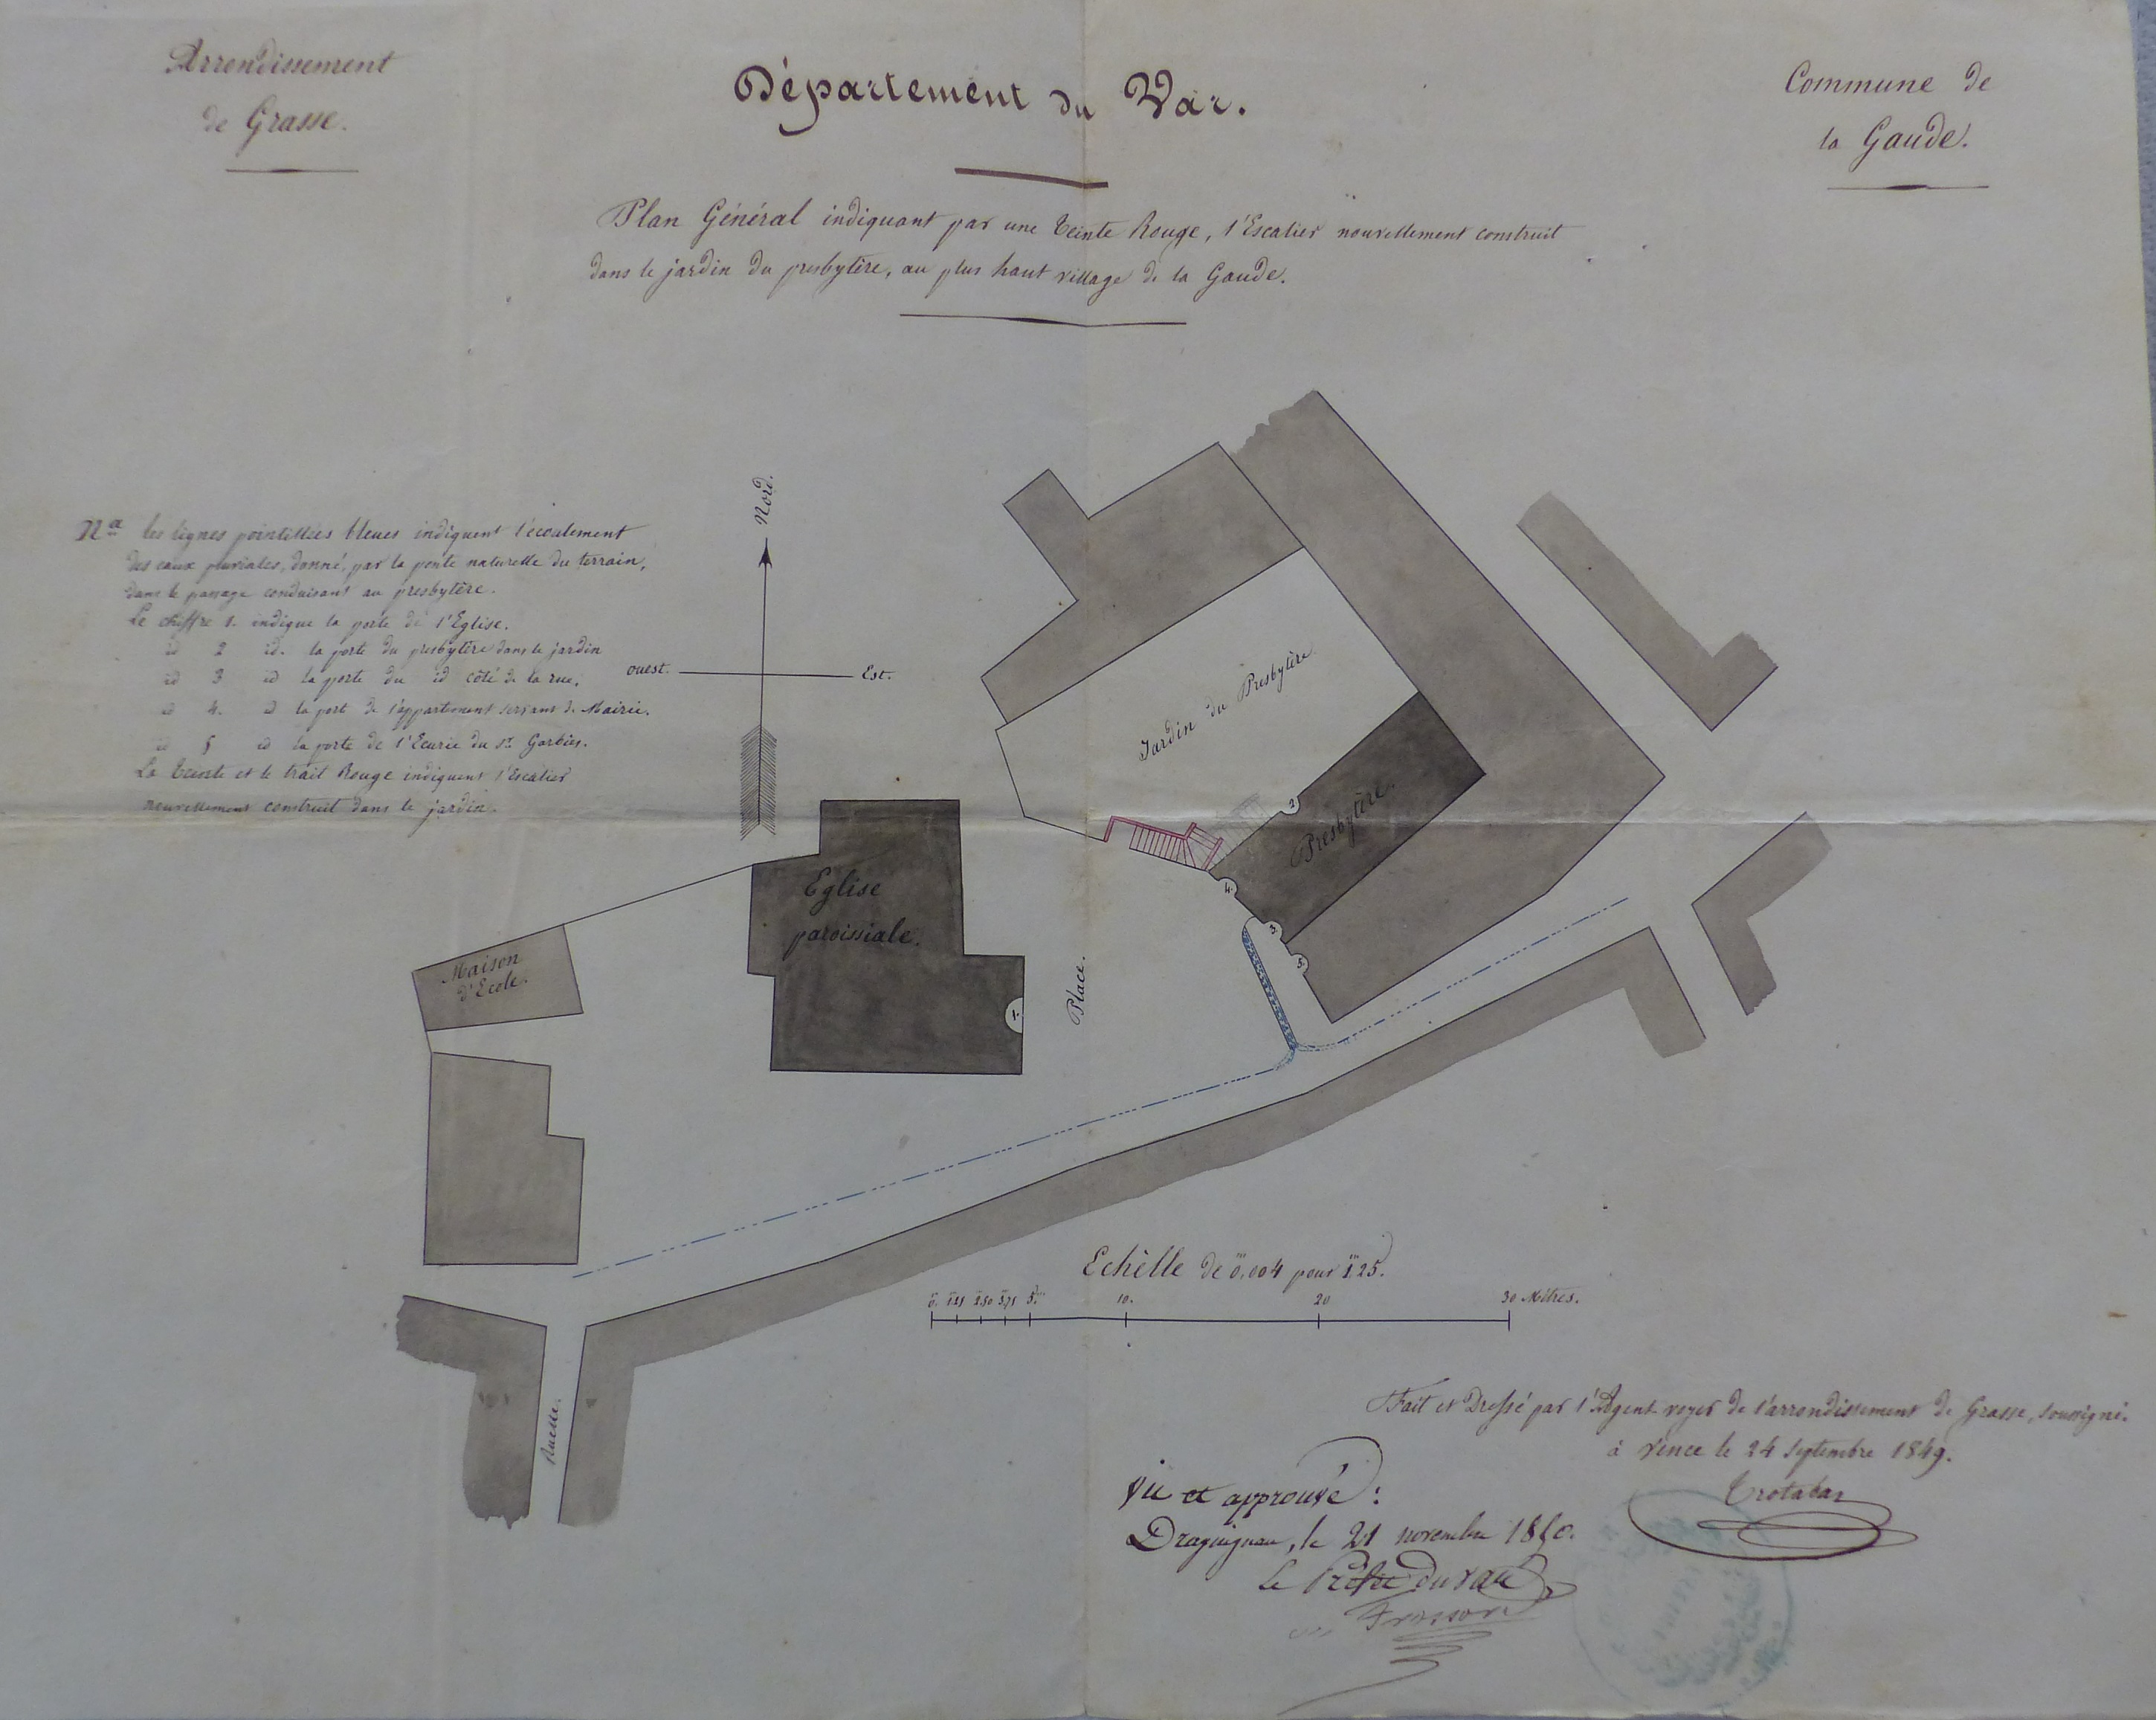 Arrondissement
de Grasse.
Département du Var.
Commune de
la Gaude.
Plan Général indiquant par une teinte Rouge, l'Escalier nouvellement construit
dans le jardin du presbytère, au plus haut village de la Gaude.
Nord.
ouest.
Est.
Nª les lignes pointillées bleues indiquent l'écoulement
des eaux pluviales, donné, par la pente naturelle du terrain,
dans le passage conduisant au presbytère.
Le chiffre 1. indique la porte de l'Eglise.
id 2 id. la porte du presbytère dans le jardin
id 3 id la porte du id côté de la rue.
id 4. id la port de l'appartement servant de Mairie.
id 5 id la porte de l'Ecurie du Sr.
La teinte et le trait Rouge indiquent l'Escalier
nouvellement construit dans le jardin.
Jardin du Presbytère.
Presbytère.
2
4.
3.
5.
Eglise
paroissiale.
1.
Place.
Maison
d'Ecole.
Ruelle.
Echèlle de 0,m004 pour 1,m25.
0. 1.25 2.50 3.75 5.m 10. 20 30 Mètres.
Fait et Dressé par l'Agent-voyer de l'arrondissement de Grasse, soussigné.
à Vence le 24 Septembre 1849.
Trotabas
Vu et approuvé :
Draguignan, le 21 novembre 1850.
Le Préfet du Var